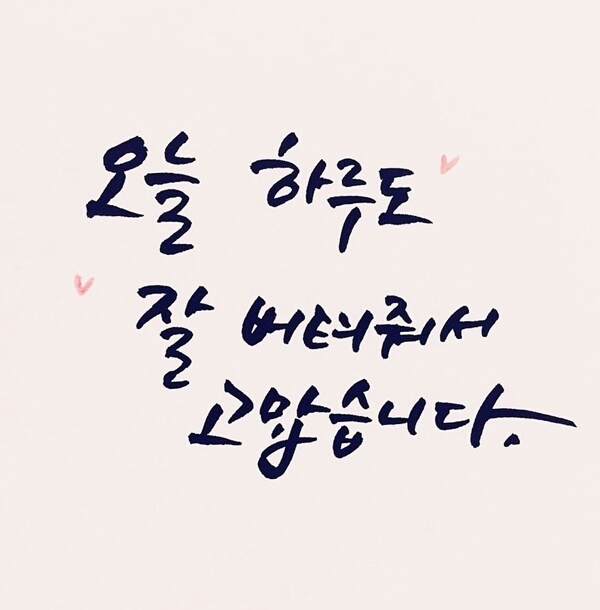 오늘 하루도
잘 버텨줘서
고맙습니다.